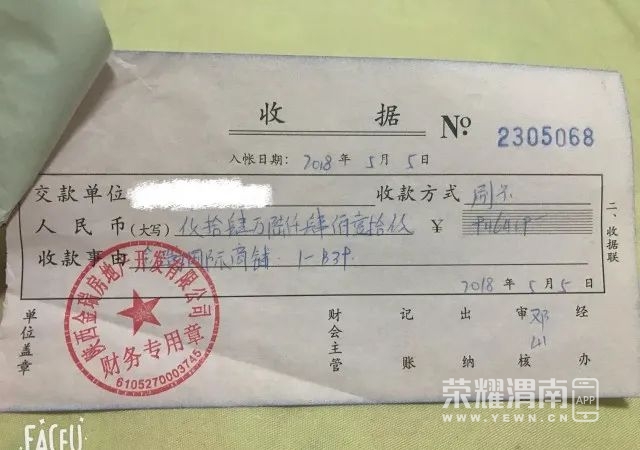 收 据
No 2305068
入帐日期: 2018 年 5 月 5 日
交款单位 收款方式 刷卡
人民币(大写) 玖拾肆万陆仟肆佰壹拾玖 ¥ 946419
收款事由 国际商铺. 1-B39.
2018 年 5 月 5 日
单位盖章 财会主管 记账 出纳 审核 邓 经办
二、收据联
陕西金瑞房地产开发有限公司
财务专用章
6105270003745
荣耀渭南 APP
WWW.YEWN.CN
FACEU